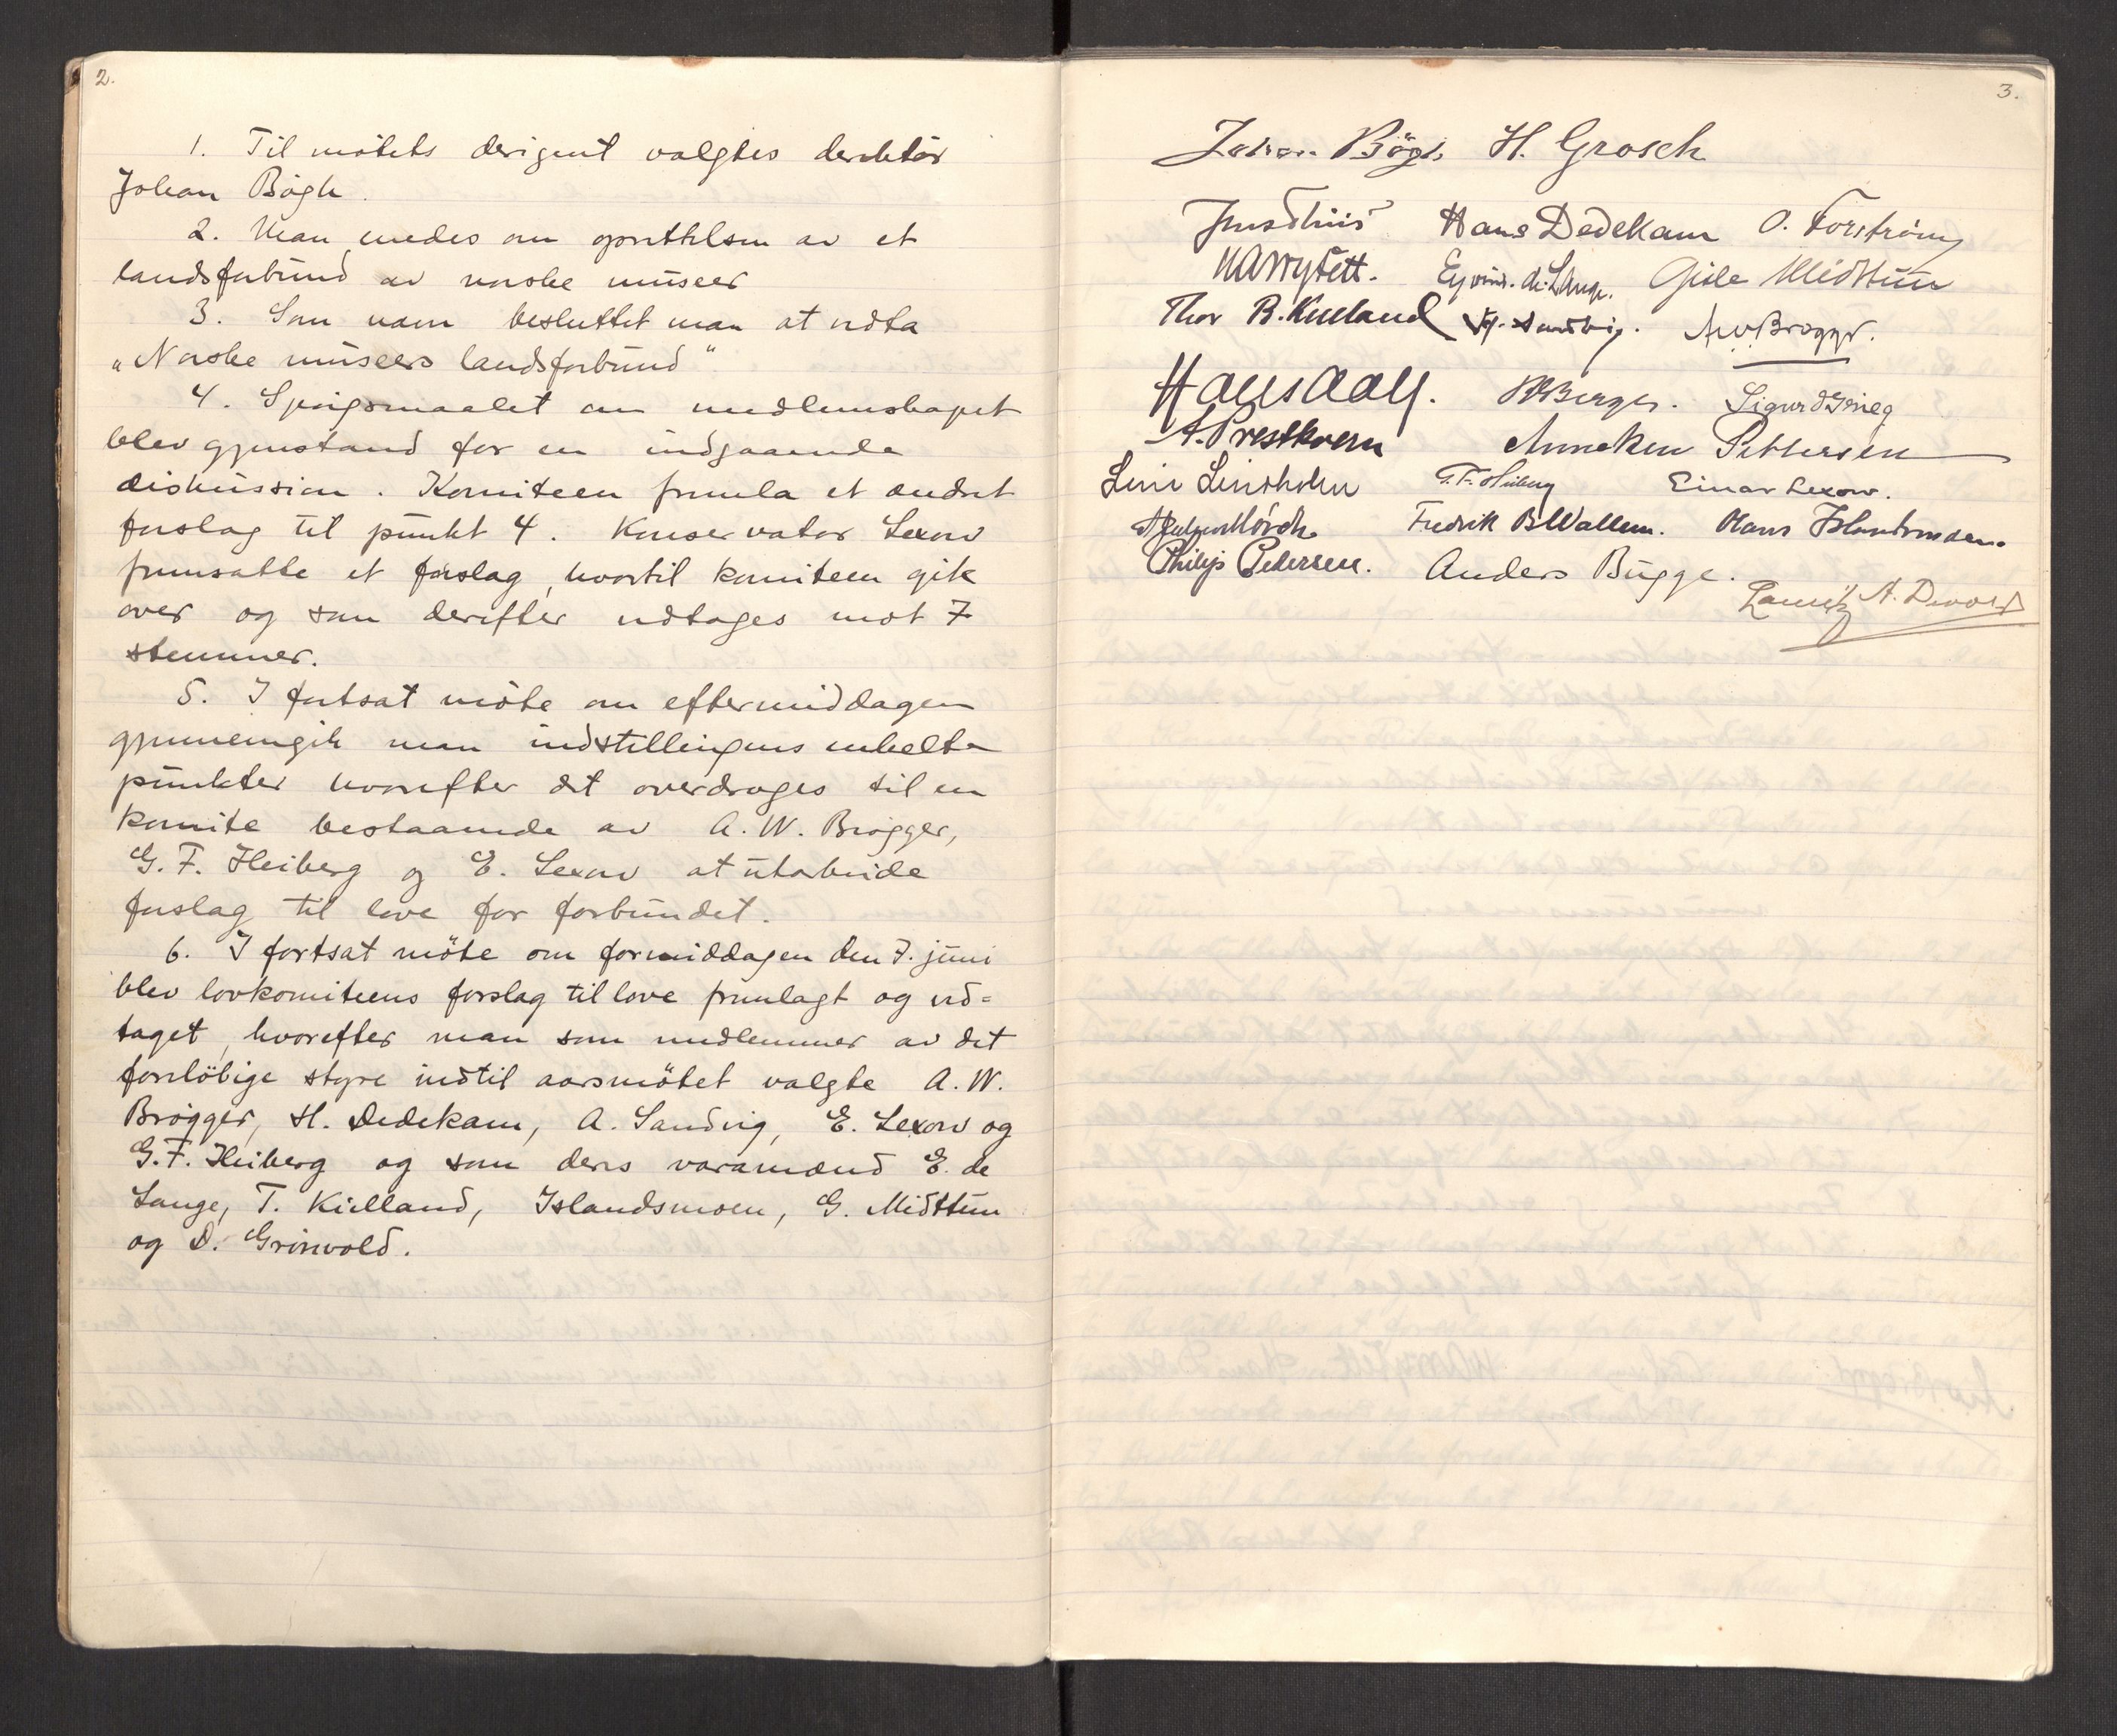 2.
1. Til mötets dirigent valgtes direktör
Johan Bögh.
2. Man enedes om oprettelsen av et
landsforbund av norske museer
3. Som navn besluttet man at vedta
„Norske museers landsforbund"
4. Spörgsmaalet om medlemskapet
blev gjenstand for en indgaaende
diskussion. Komiteen fremla et ændret
forslag til punkt 4. Konservator Lexow
fremsatte et forslag, hvortil komiteen gik
over og som derefter vedtoges mot 7
stemmer.
5. I fortsat möte om eftermiddagen
gjennemgik man indstillingens enkelte
punkter hvorefter det overdroges til en
komite bestaaende av A. W. Brögger,
G. F. Heiberg og E. Lexow at utarbeide
forslag til love for forbundet.
6. I fortsat möte om formiddagen den 7. juni
blev lovkomiteens forslag til love fremlagt og ved=
taget, hvorefter man som medlemmer av det
foreløbige styre indtil aarsmötet valgte A. W.
Brögger, H. Dedekam, A. Sandvig, E. Lexow og
G. F. Heiberg og som deres varamænd E. de
Lange, T. Kielland, Islandsmoen, G. Midttun
og D. Grönvold.
3.
Johan Bögh H. Grosch
Jens Thiis Hans Dedekam O. Forström
Harry Fett. Eyvind de Lange. Gisle Midttun
Thor B. Kielland A. Sandvig. A.W. Brøgger.
Hans Aall. Berger. Sigurd Grieg
A. Prestkvern Anneken Pettersen
Lindholm G. F. Heiberg Einar Lexow.
Mörch Fredrik B Wallem. Hans Islandsmoen.
Philip Pedersen. Anders Bugge.
Lauritz A. Devold